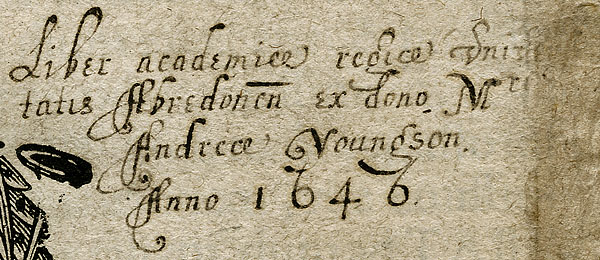 Liber academiæ regiæ Vniversi
tatis Abredonēn ex dono Mri
Andreæ Youngson.
Anno 1646.